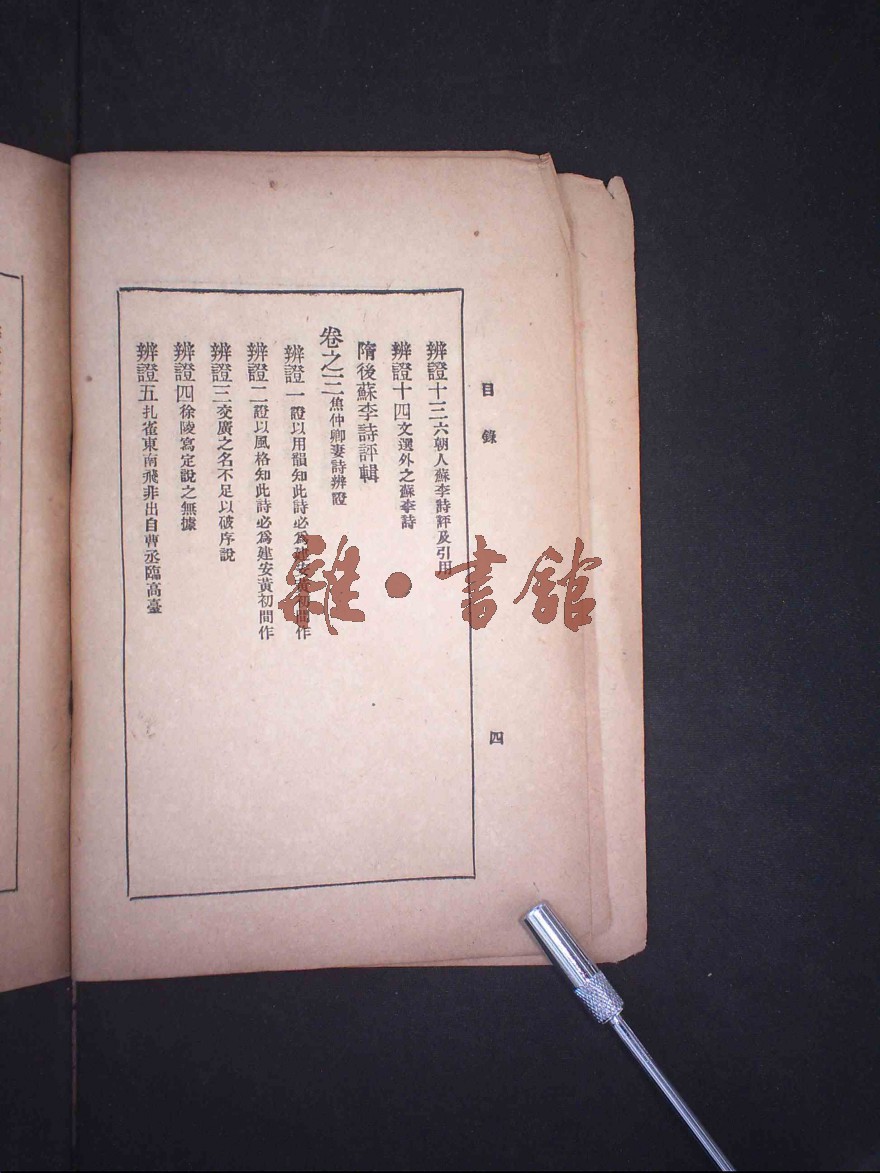 目錄
四
辨證十三六朝人蘇李詩評及引用
辨證十四文選外之蘇李詩
隋後蘇李詩評輯
卷之三焦仲卿妻詩辨證
辨證一證以用韻知此詩必爲建安黃初間作
辨證二證以風格知此詩必爲建安黃初間作
辨證三交廣之名不足以破序說
辨證四徐陵寫定說之無據
辨證五孔雀東南飛非出自曹丕臨高臺
雜·書館